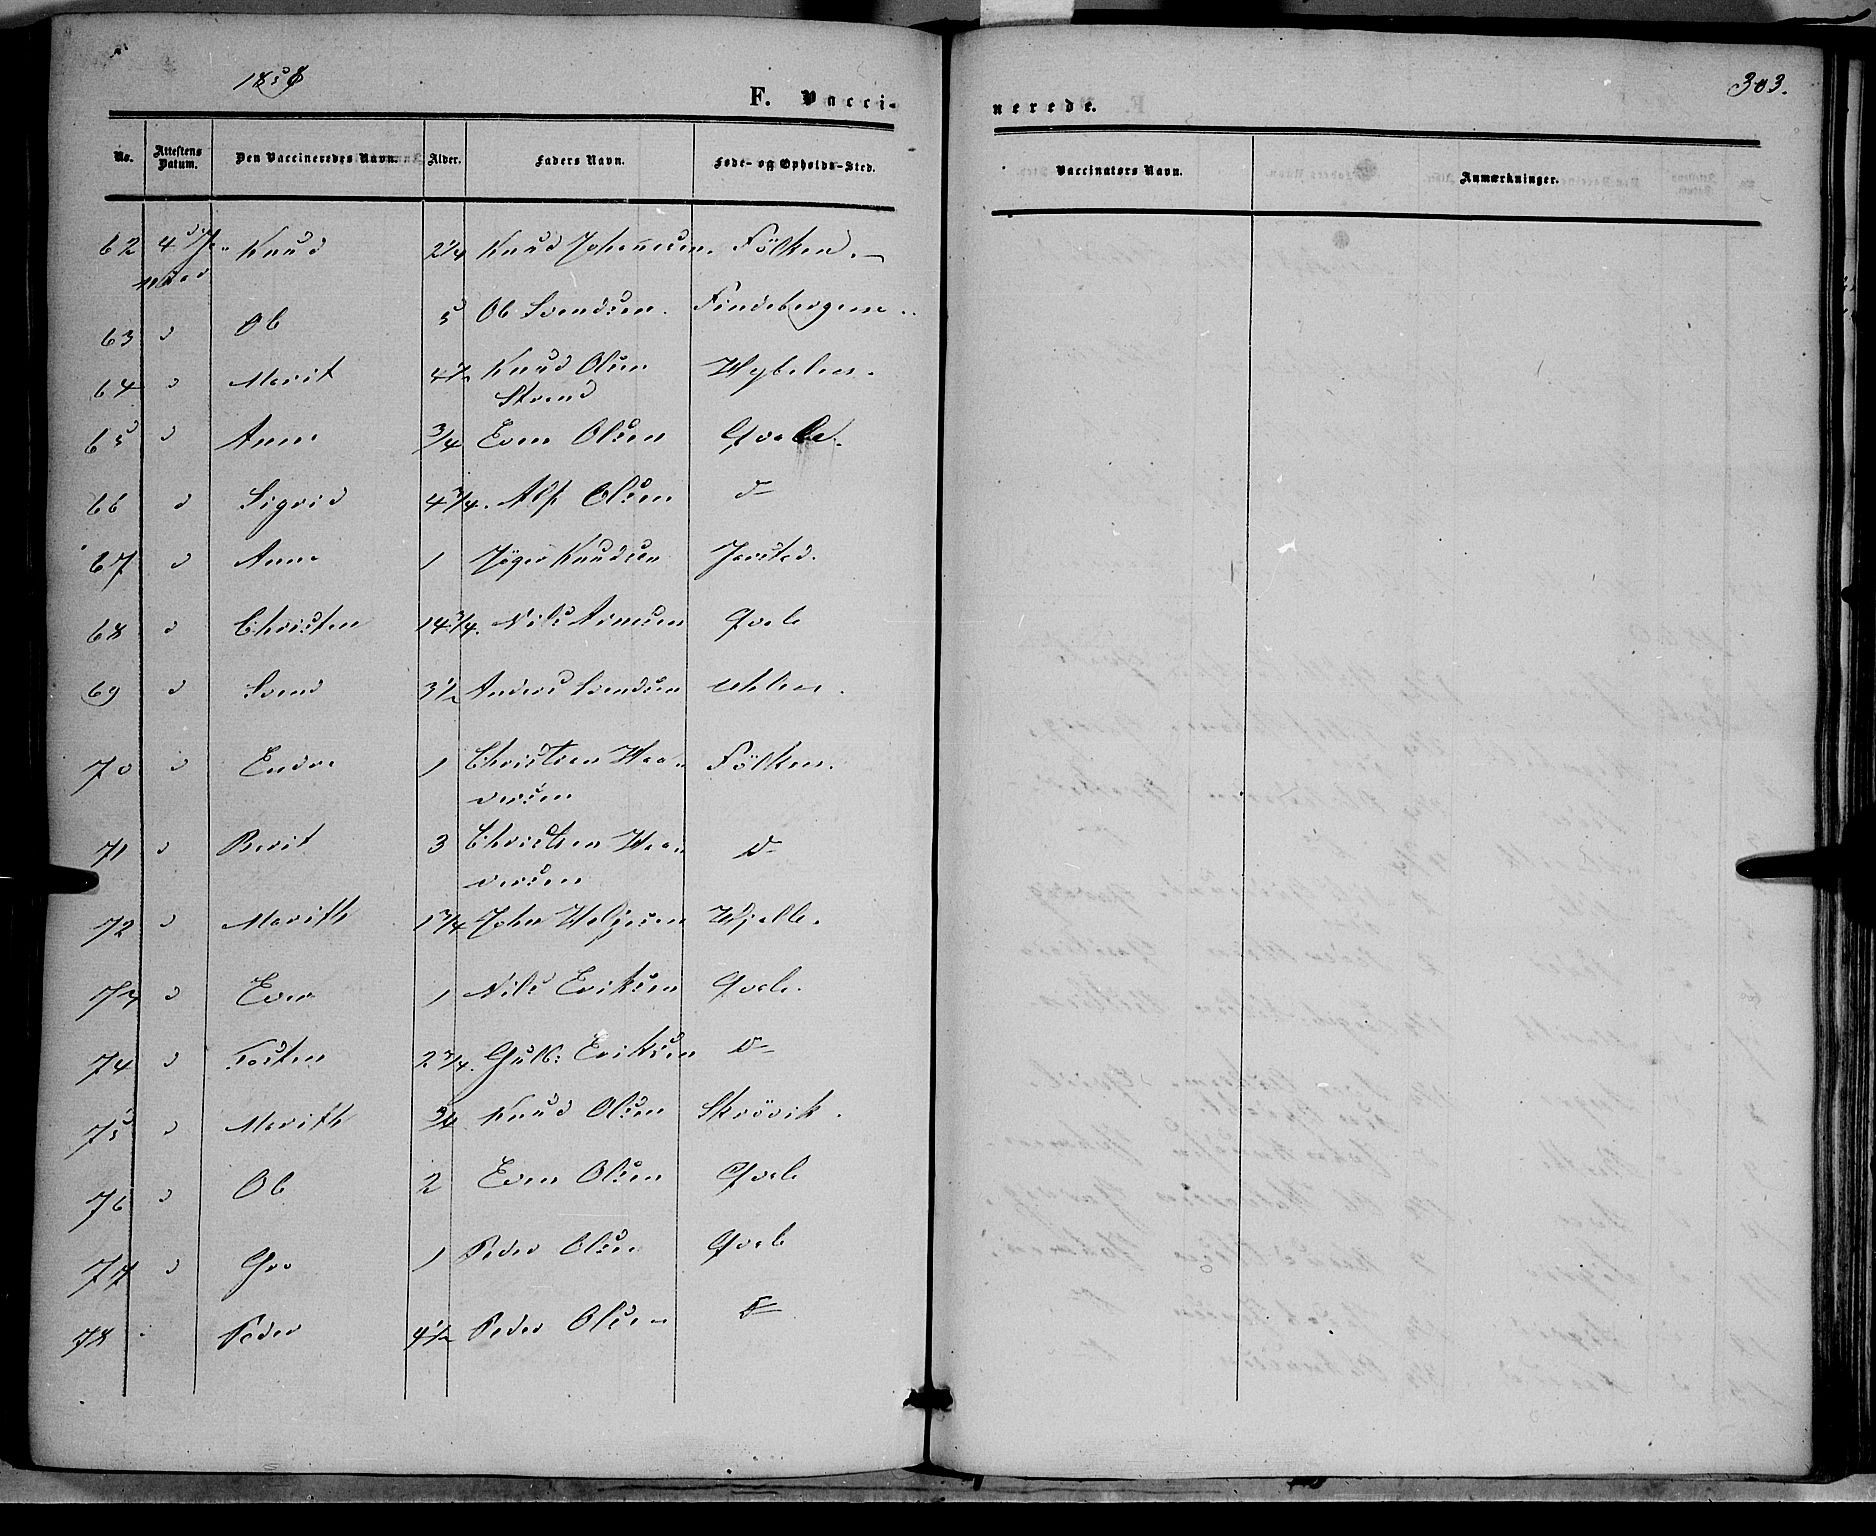 1858
303.
F. Vacci-
nerede.
No. Attestens Datum. Den Vaccineredes Navn. Alder. Faders Navn. Føde- og Opholds-Sted. Vaccinators Navn. Anmærkninger.
62 4d Knud 2 1/4 Knud Johannesen. Fölken.
63 d Ole 5 Ole Svendsen. Findebergene.
64 d Marit 4 1/2 Knud Olsen
65 d Anne 3/4 Even Olsen Qvale.
66 d Sigrid 4 3/4. Alf Olsen d-
67 d Anne 1 Knudsen
68 d Christen 14 3/4. Nils Arnesen Qvale
69 d Svend 3 1/2 Anders Svendsen
70 d Endre 1 Christen Haa-
versen Fölken.
71 d Berit 3 Christen Haa-
versen D-
72 d Marith 1 3/4 John Helgesen
73 d Even 1 Nils Eriksen Qvale.
74 d Tosten 2 3/4. Gulb: Eriksen D-
75 d Marith 3/4 Knud Olsen Skrövik.
76 d Ole 2 Even Olsen Qvale
77 d Gro 1 Peder Olsen Qvale
78 Peder 4 1/2 Peder Olsen D-